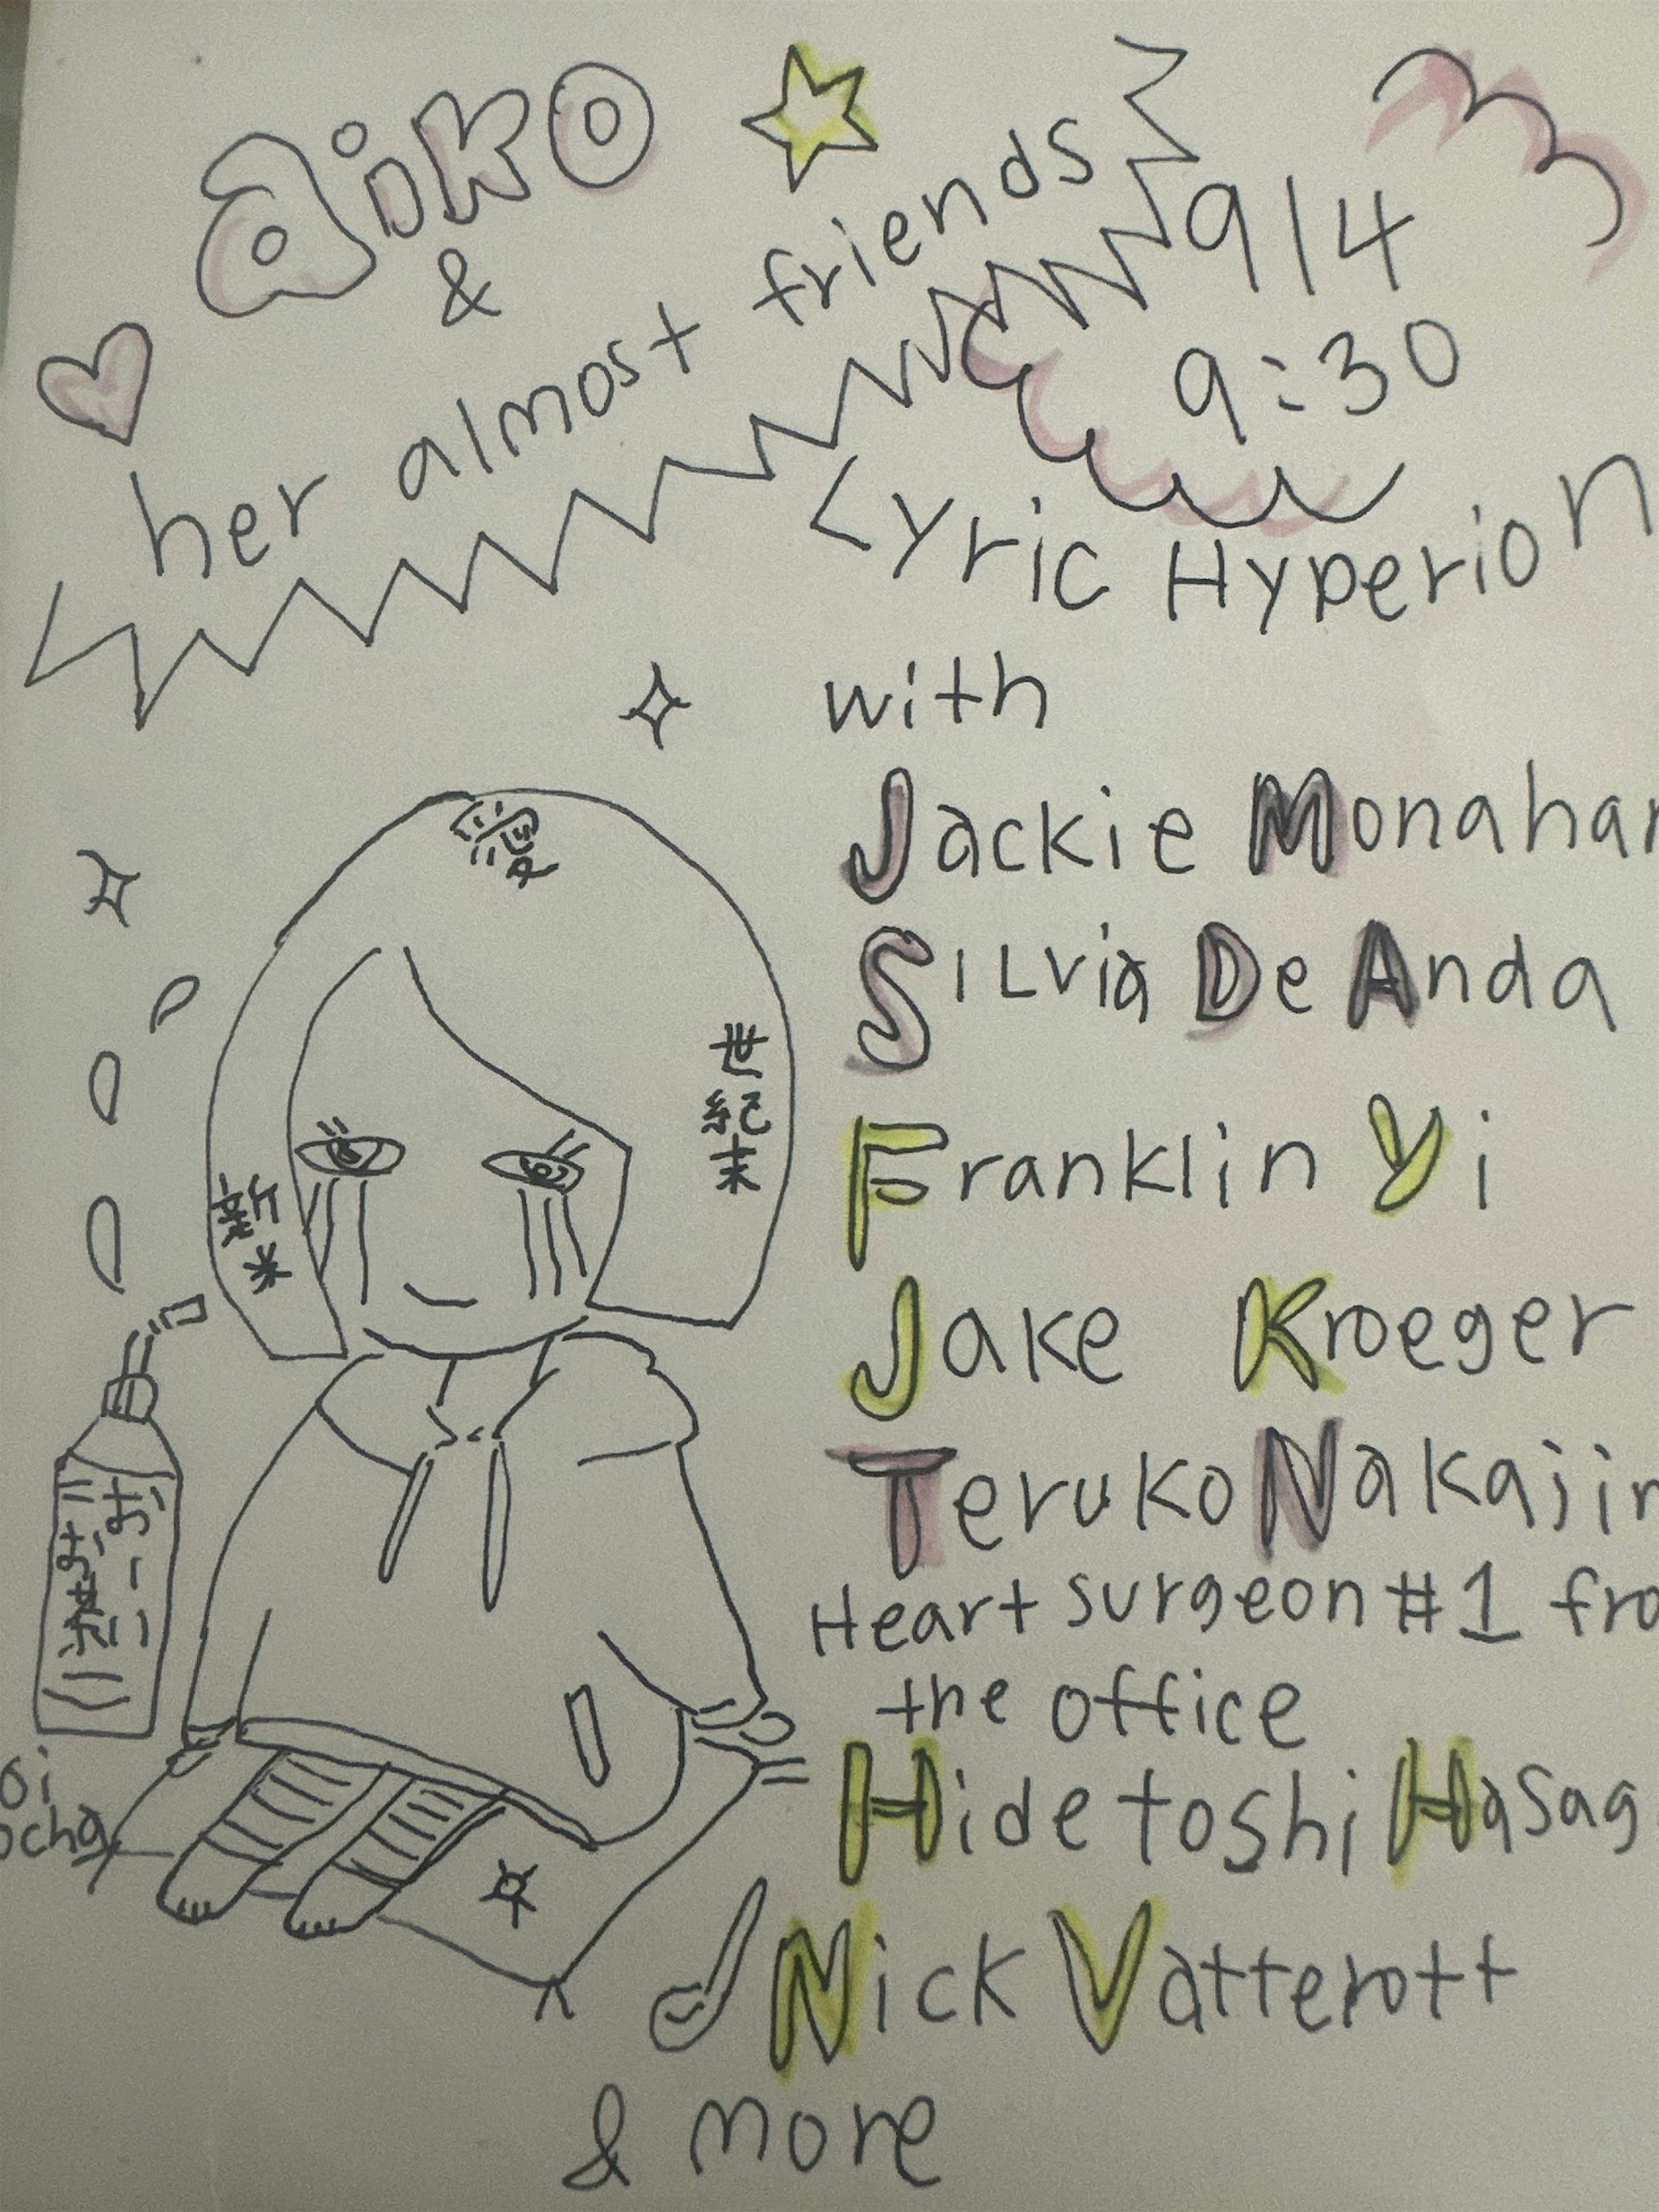 aiko
&
her almost friends
914
9:30
Lyric Hyperion
with
Jackie Monahan
SILvia De Anda
Franklin Yi
Jake Kroeger
Teruko Nakajim
Heart surgeon #1 fro
the office
Hidetoshi Hasag
Nick Vatterott
& more
愛
世紀末
新米
おーい
お茶
oi
ocha